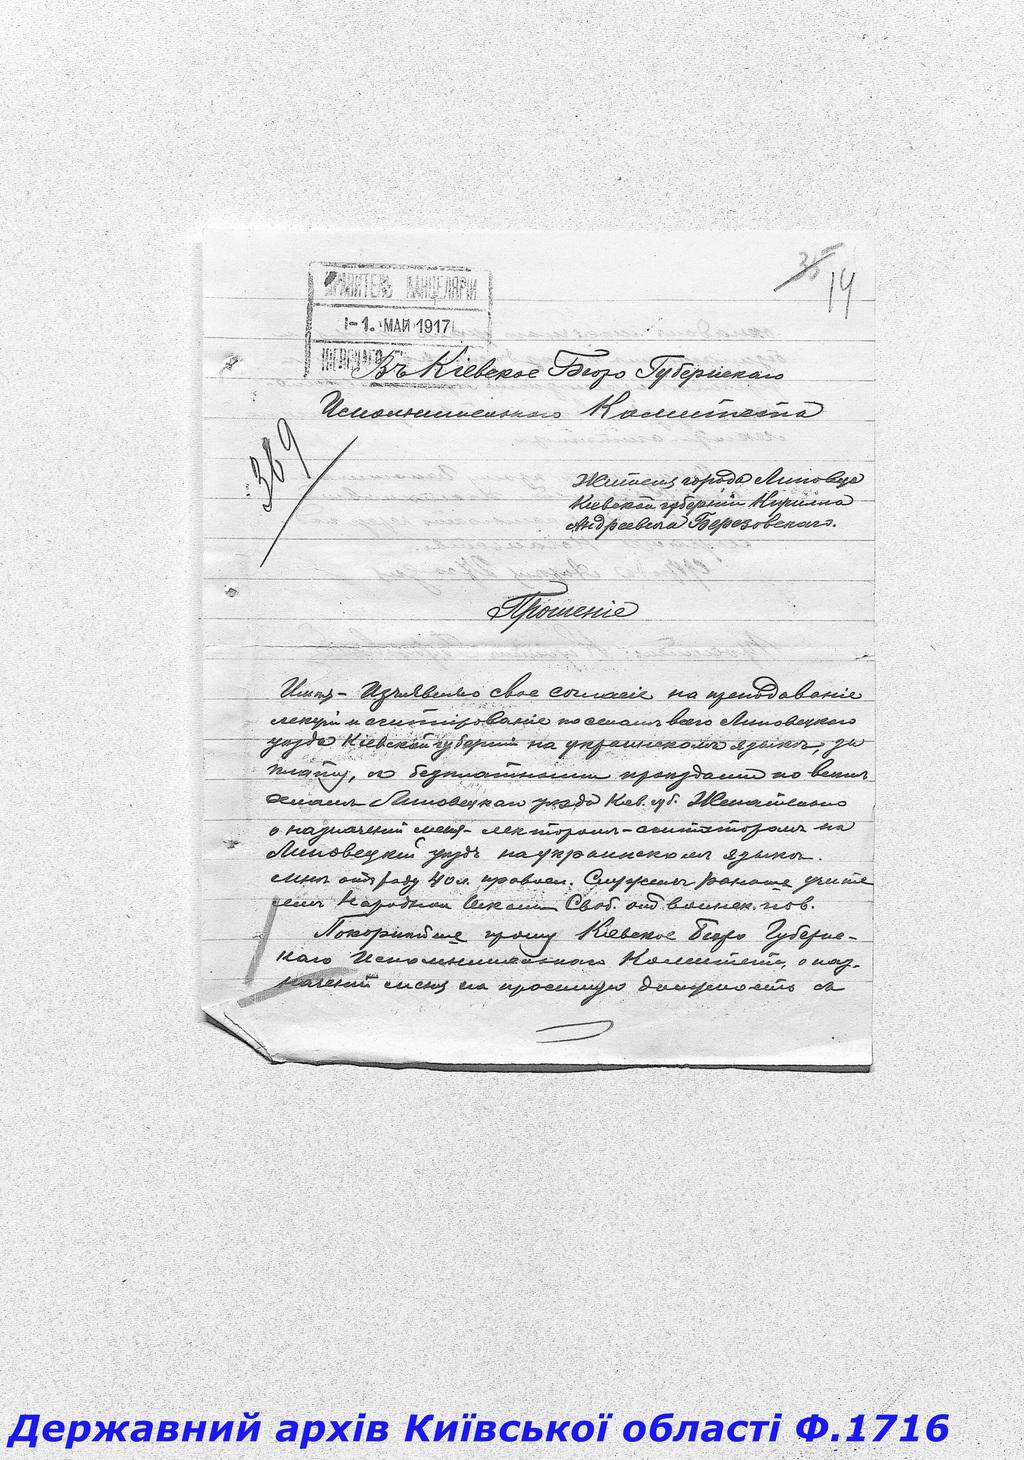 35 14
ПРАВИТЕЛЬ КАНЦЕЛЯРІИ
1-1. МАЙ 1917
КІЕВСКАГО
Въ Кіевское Бюро Губернскаго
Исполнительнаго Комитета
369
Житель города Липовца
Кіевской губерніи Кирилла
Андреевича Березовскаго.
Прошеніе
Изъявляю свое согласіе на преподаваніе
лекцій и агитированіе по селамъ всего Липовецкаго
уѣзда Кіевской губерніи на украинскомъ языкѣ, за
плату, съ безплатнымъ проѣздомъ по всемъ
селамъ Липовецкаго уѣзда Кіев. губ. Желательно
о назначеніи меня лекторомъ-агитаторомъ на
Липовецкій уѣздъ на украинскомъ языкѣ.
Мнѣ отъ роду 40 л. правосл. Служилъ раньше учите
лемъ Народной Школы Своб. отъ воинск. пов.
Покорнѣйше прошу Кіевское Бюро Губернс-
каго Исполнительнаго Комитета, о наз-
наченіи меня на просимую должность съ
Державний архів Київської області Ф.1716